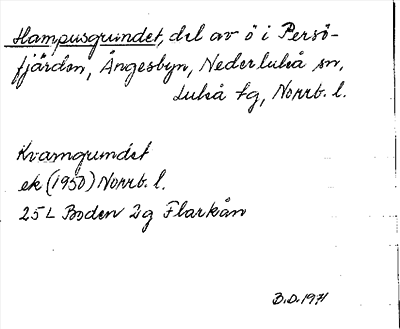 Hampusgrundet, del av ö i Persö-
fjärden, Ängesbyn, Nederluleå sn,
Luleå tg, Norrb. l.
Kvarngrundet
ek (1950) Norrb. l.
25 L Boden 2g Flarkån
B.D. 1971